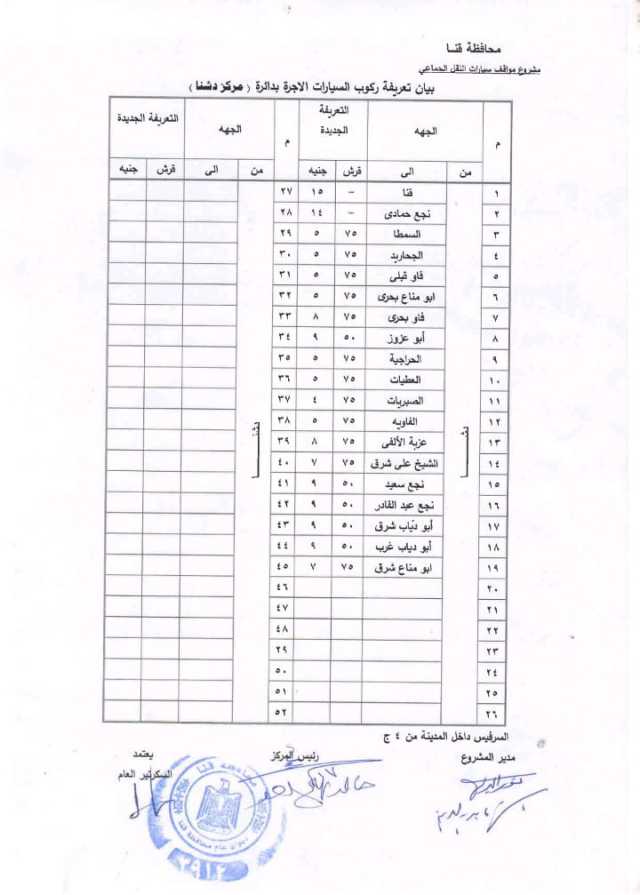 محافظة قنــا
مشروع مواقف سيارات النقل الجماعي
بيان تعريفة ركوب السيارات الاجرة بدائرة ( مركز دشنا )
م الجهه التعريفة الجديدة م الجهه التعريفة الجديدة
من الى قرش جنيه من الى قرش جنيه
١ قنا – ١٥ ٢٧
٢ نجع حمادى – ١٤ ٢٨
٣ السمطا ٧٥ ٥ ٢٩
٤ الجحاريد ٧٥ ٥ ٣٠
٥ فاو قبلى ٧٥ ٥ ٣١
٦ ابو مناع بحرى ٧٥ ٥ ٣٢
٧ فاو بحرى ٧٥ ٨ ٣٣
٨ أبو عزوز ٥٠ ٩ ٣٤
٩ الحراجية ٧٥ ٥ ٣٥
١٠ العطيات ٧٥ ٥ ٣٦
١١ الصبريات ٧٥ ٤ ٣٧
١٢ الفاويه ٧٥ ٥ ٣٨
١٣ دشــنــا عزبة الألفى ٧٥ ٨ ٣٩ دشــنــا
١٤ الشيخ على شرق ٧٥ ٧ ٤٠
١٥ نجع سعيد ٥٠ ٩ ٤١
١٦ نجع عبد القادر ٥٠ ٩ ٤٢
١٧ أبو دياب شرق ٥٠ ٩ ٤٣
١٨ أبو دياب غرب ٥٠ ٩ ٤٤
١٩ ابو مناع شرق ٧٥ ٧ ٤٥
٢٠ ٤٦
٢١ ٤٧
٢٢ ٤٨
٢٣ ٢٩
٢٤ ٥٠
٢٥ ٥١
٢٦ ٥٢
السرفيس داخل المدينة من ٤ ج
مدير المشروع رئيس المركز يعتمد
السكرتير العام
محافظة قنا
ديوان عام محافظة قنا